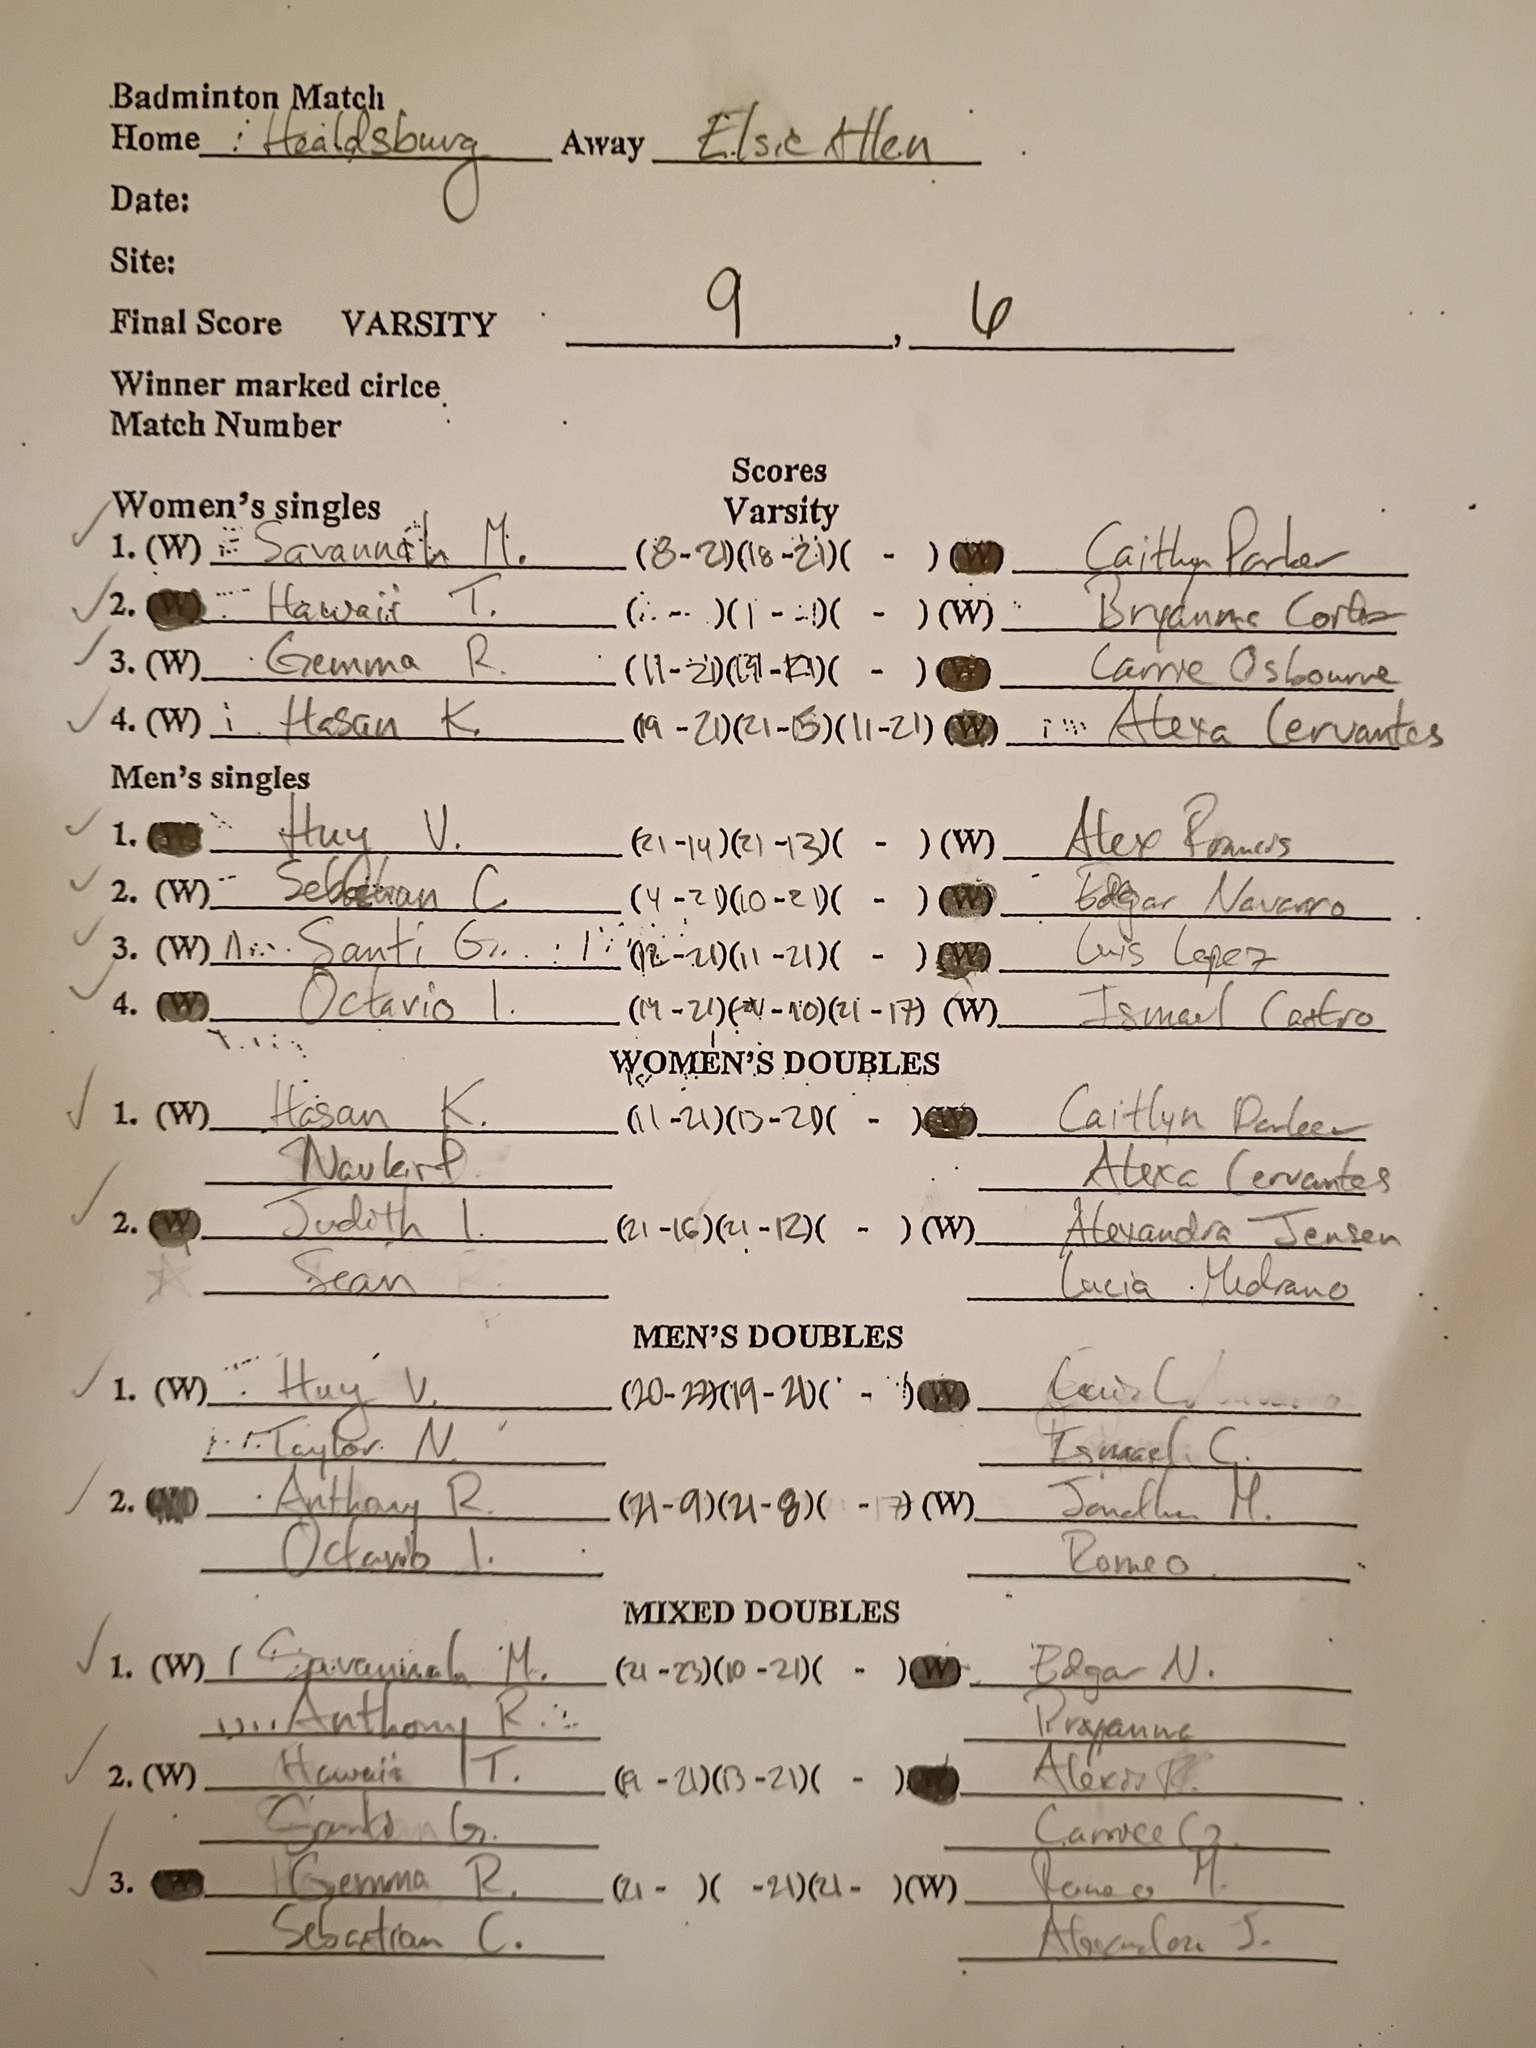 Badminton Match
Home Healdsburg Away Elsie Allen
Date:
Site:
Final Score VARSITY 9 , 6
Winner marked cirlce
Match Number
Scores
Women's singles Varsity
1. (W) Savannah M. (8-21)(18-21)( - ) (W) Caitlyn Parker
2. (W) Hawaii T. ( - )( - )( - ) (W) Bryanna Cortez
3. (W) Gemma R. (11-21)( - )( - ) (W) Carrie Osbourne
4. (W) Hasan K. (19-21)(21-15)(11-21) (W) Alexa Cervantes
Men's singles
1. (W) Huy V. (21-14)(21-13)( - ) (W) Alex
2. (W) Sebastian C. (4-21)(10-21)( - ) (W) Edgar Navarro
3. (W) Santi G. (12-21)(11-21)( - ) (W) Luis Lopez
4. (W) Octavio I. (14-21)(21-10)(21-17) (W) Ismael Castro
WOMEN'S DOUBLES
1. (W) Hasan K. (11-21)(13-21)( - ) (W) Caitlyn Parker
Alexa Cervantes
2. (W) Judith I. (21-16)(21-12)( - ) (W) Alexandra Jensen
Sean Lucia Medrano
MEN'S DOUBLES
1. (W) Huy V. (20-22)(19-21)( - ) (W) Luis
Taylor N. Ismael C.
2. (W) Anthony R. (21-9)(21-8)( -17) (W) M.
Octavio I. Romeo
MIXED DOUBLES
1. (W) Savannah M. (21-23)(10-21)( - ) (W) Edgar N.
Anthony R. Bryanna
2. (W) Hawaii T. (19-21)(13-21)( - ) (W) Alexis
G.
3. (W) Gemma R. (21- )( -21)(21- ) (W) Romeo M.
Sebastian C. J.